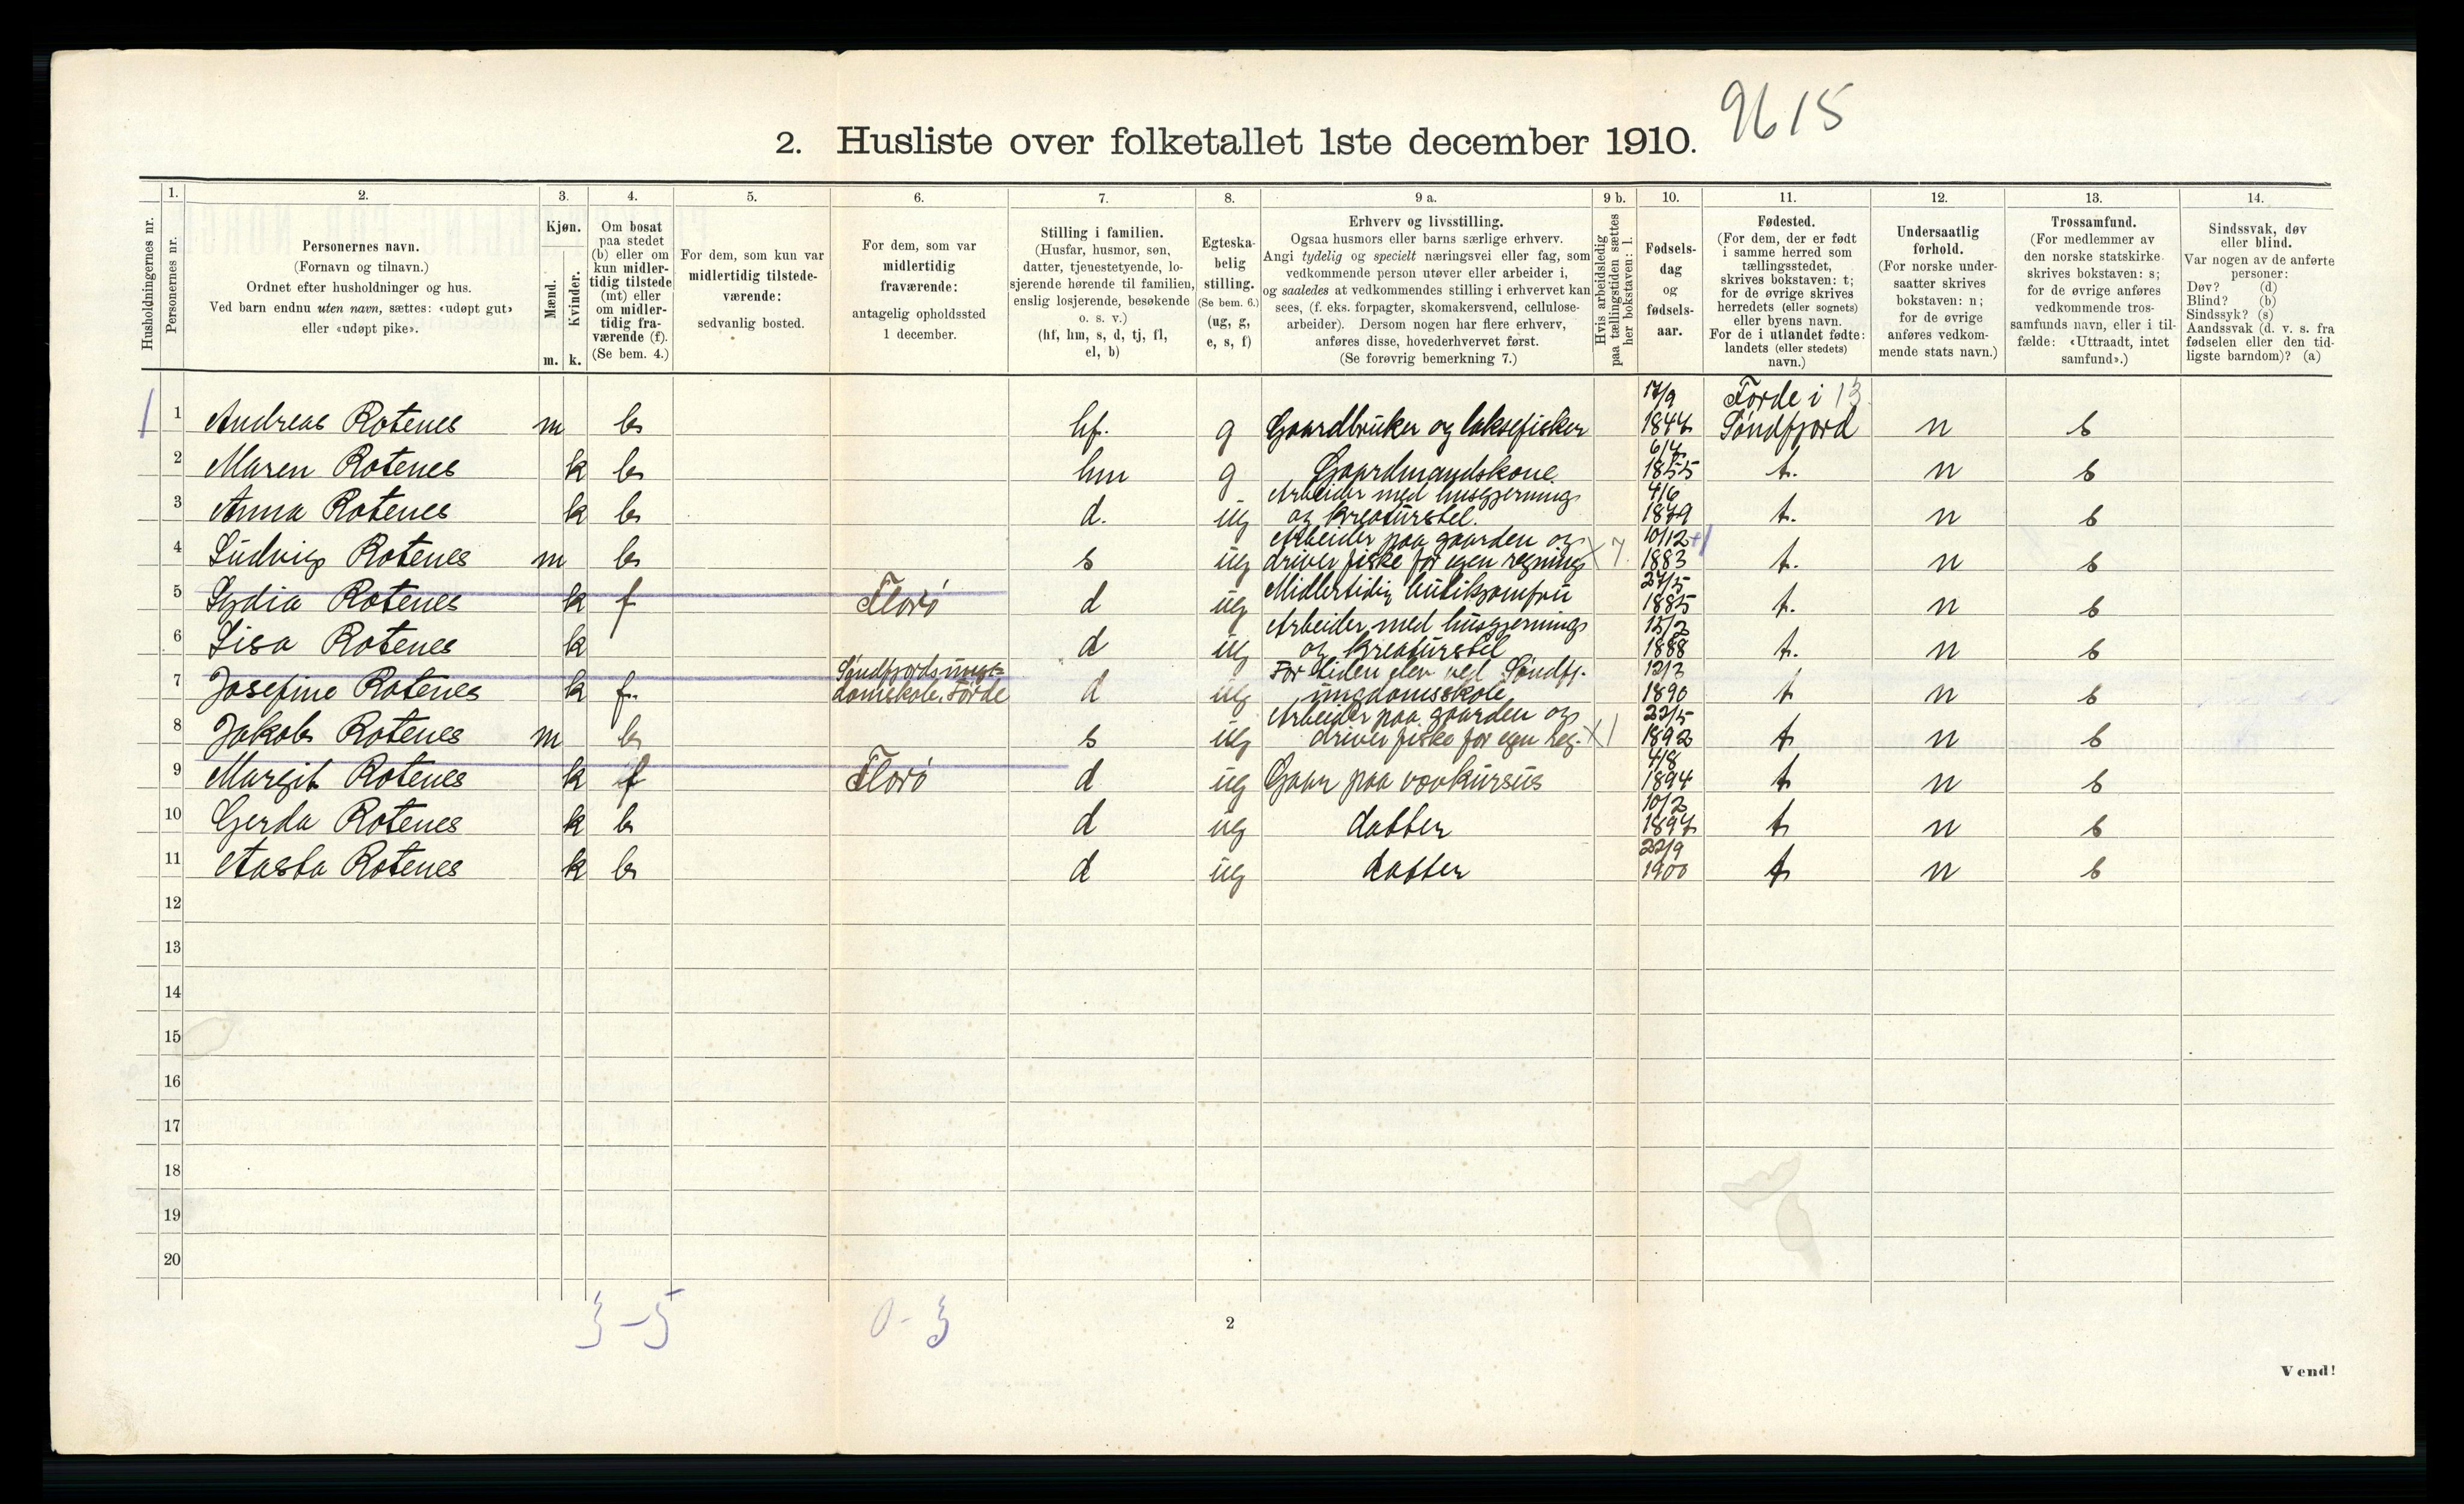 9615
2. Husliste over folketallet 1ste december 1910.
Husholdningernes nr.
1. Personernes nr.
2. Personernes navn.
(Fornavn og tilnavn.)
Ordnet efter husholdninger og hus.
Ved barn endnu uten navn, sættes: «udøpt gut»
eller «udøpt pike».
3. Kjøn.
Mænd. m.
Kvinder. k.
4. Om bosat
paa stedet
(b) eller om
kun midler-
tidig tilstede
(mt) eller
om midler-
tidig fra-
værende (f).
(Se bem. 4.)
5. For dem, som kun var
midlertidig tilstede-
værende:
sedvanlig bosted.
6. For dem, som var
midlertidig
fraværende:
antagelig opholdssted
1 december.
7. Stilling i familien.
(Husfar, husmor, søn,
datter, tjenestetyende, lo-
sjerende hørende til familien,
enslig losjerende, besøkende
o. s. v.)
(hf, hm, s, d, tj, fl,
el, b)
8. Egteska-
belig
stilling.
(Se bem. 6.)
(ug, g,
e, s, f)
9 a. Erhverv og livsstilling.
Ogsaa husmors eller barns særlige erhverv.
Angi tydelig og specielt næringsvei eller fag, som
vedkommende person utøver eller arbeider i,
og saaledes at vedkommendes stilling i erhvervet kan
sees, (f. eks. forpagter, skomakersvend, cellulose-
arbeider). Dersom nogen har flere erhverv,
anføres disse, hovederhvervet først.
(Se forøvrig bemerkning 7.)
9 b. Hvis arbeidsledig
paa tællingstiden sættes
her bokstaven: l.
10. Fødsels-
dag
og
fødsels-
aar.
11. Fødested.
(For dem, der er født
i samme herred som
tællingsstedet,
skrives bokstaven: t;
for de øvrige skrives
herredets (eller sognets)
eller byens navn.
For de i utlandet fødte:
landets (eller stedets)
navn.)
12. Undersaatlig
forhold.
(For norske under-
saatter skrives
bokstaven: n;
for de øvrige
anføres vedkom-
mende stats navn.)
13. Trossamfund.
(For medlemmer av
den norske statskirke
skrives bokstaven: s;
for de øvrige anføres
vedkommende tros-
samfunds navn, eller i til-
fælde: «Uttraadt, intet
samfund».)
14. Sindssvak, døv
eller blind.
Var nogen av de anførte
personer:
Døv? (d)
Blind? (b)
Sindssyk? (s)
Aandssvak (d. v. s. fra
fødselen eller den tid-
ligste barndom)? (a)
1 1 Andreas Rotenes m b hf. g Gaardbruker og laksefisker 17/9 1847 Førde i Søndfjord 13 n s
2 Maren Rotenes k b hm g Gaardmandskone 6/4 1855 t. n s
3 Anna Rotenes k b d. ug Arbeider med husgjerning og kreaturstel. 4/6 1879 t. n s
4 Ludvig Rotenes m b s ug Arbeider paa gaarden og driver fiske for egen regning X 7. 10/12 1883 t. n s
5 Lydia Rotenes k f Florø d ug Midlertidig butikjomfru 27/5 1885 t. n s
6 Lisa Rotenes k d ug Arbeider med husgjerning og kreaturstel 15/2 1888 t. n s
7 Josefine Rotenes k f. Søndfjords ungdomskole, Førde d ug For tiden elev ved Søndfj. ungdomsskole 12/3 1890 t n s
8 Jakob Rotenes m b s ug Arbeider paa gaarden og driver fiske for egen reg. X 1 22/5 1892 t n s
9 Margit Rotenes k f Florø d ug Gaar paa vævkursus 4/8 1894 t n s
10 Gerda Rotenes k b d ug datter 10/2 1897 t n s
11 Aasta Rotenes k b d ug datter 22/9 1900 t n s
12
13
14
15
16
17
18
19
20
3-5 0-3
2
Vend!